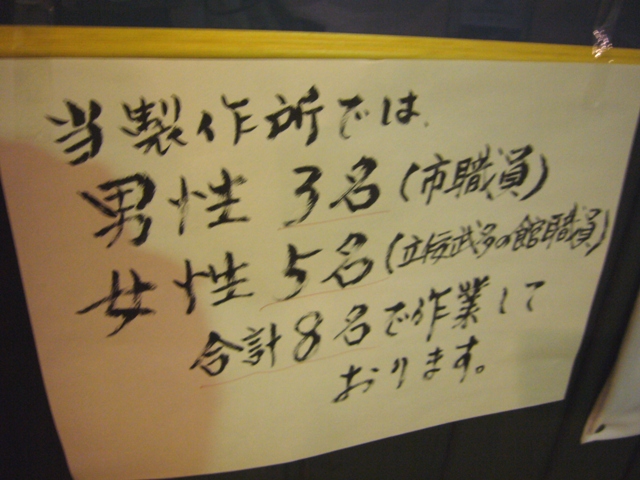 当製作所では、
男性 3名(市職員)
女性 5名(立佞武多の館職員)
合計8名で作業して
おります。